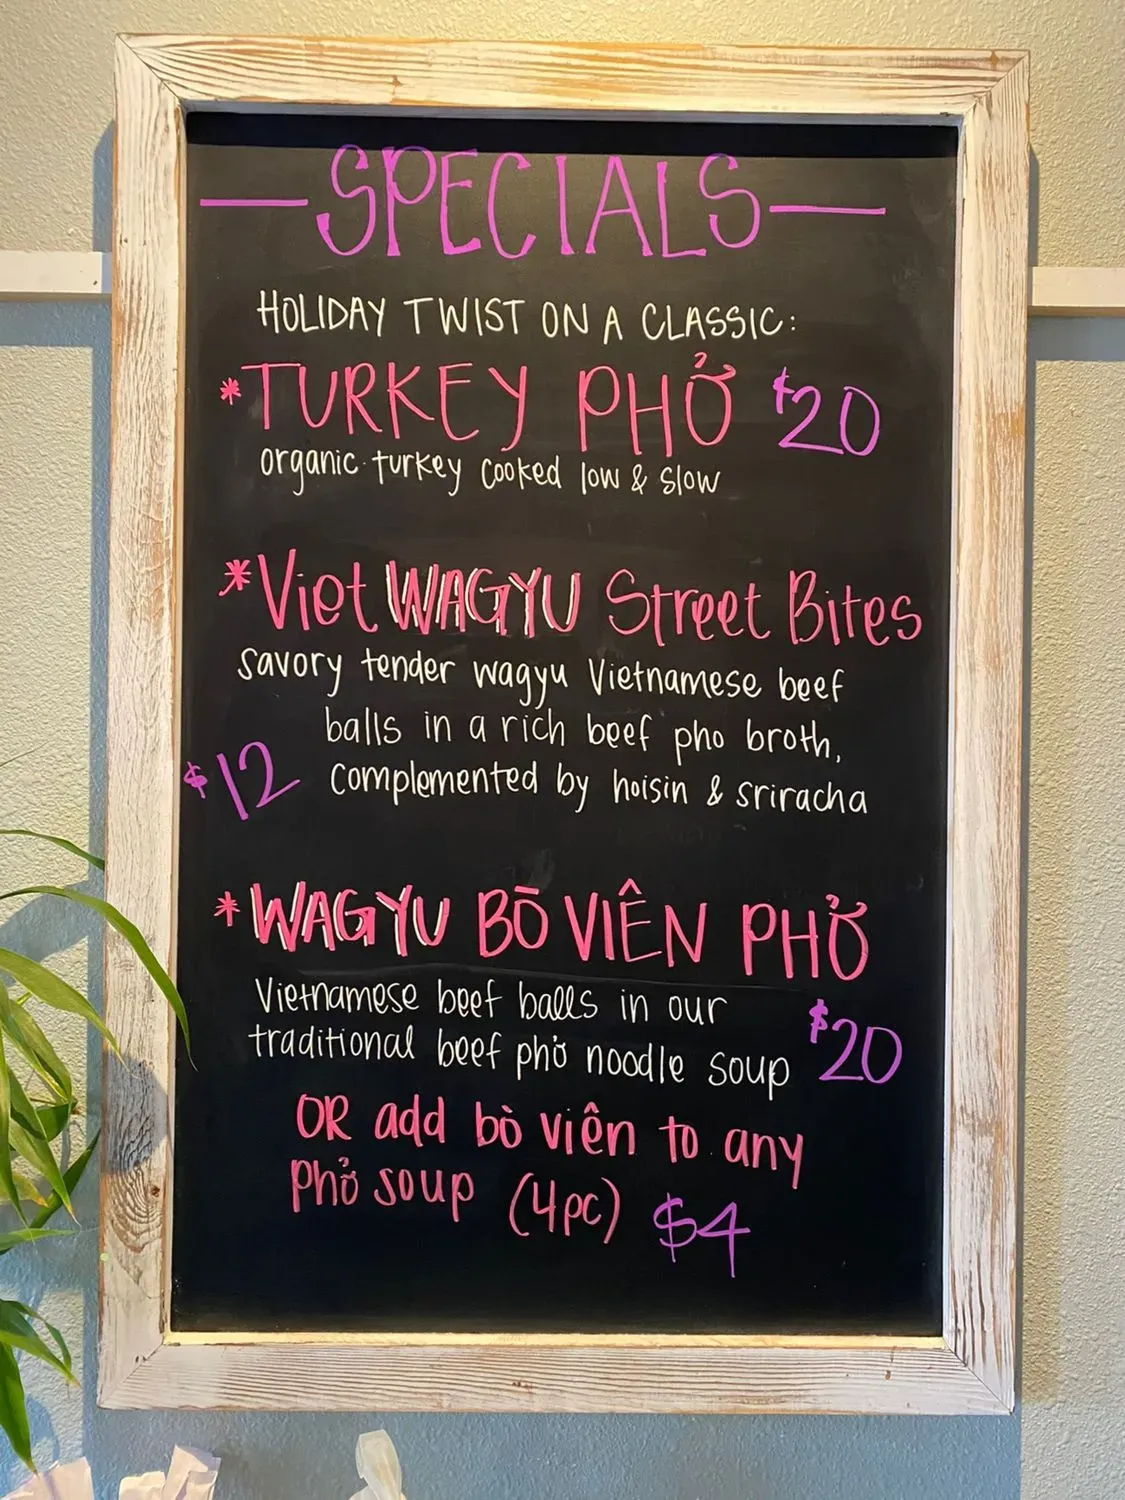 SPECIALS
HOLIDAY TWIST ON A CLASSIC:
*TURKEY PHỞ $20
organic turkey cooked low & slow
*Viet WAGYU Street Bites
savory tender wagyu Vietnamese beef
balls in a rich beef pho broth,
$12 complemented by hoisin & sriracha
*WAGYU BÒ VIÊN PHỞ
Vietnamese beef balls in our
traditional beef phở noodle soup $20
OR add bò viên to any
phở soup (4pc) $4